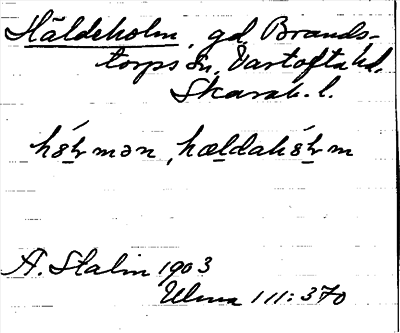 Häldeholm, gd, Brands-
torps sn, Vartofta hd,
Skarab. l.
A. Stalin 1903
Ulma 111:370